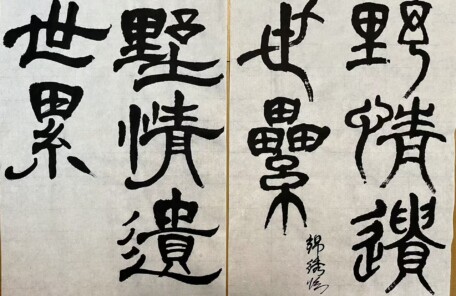 野情遺
世纍
墅情遺
世累